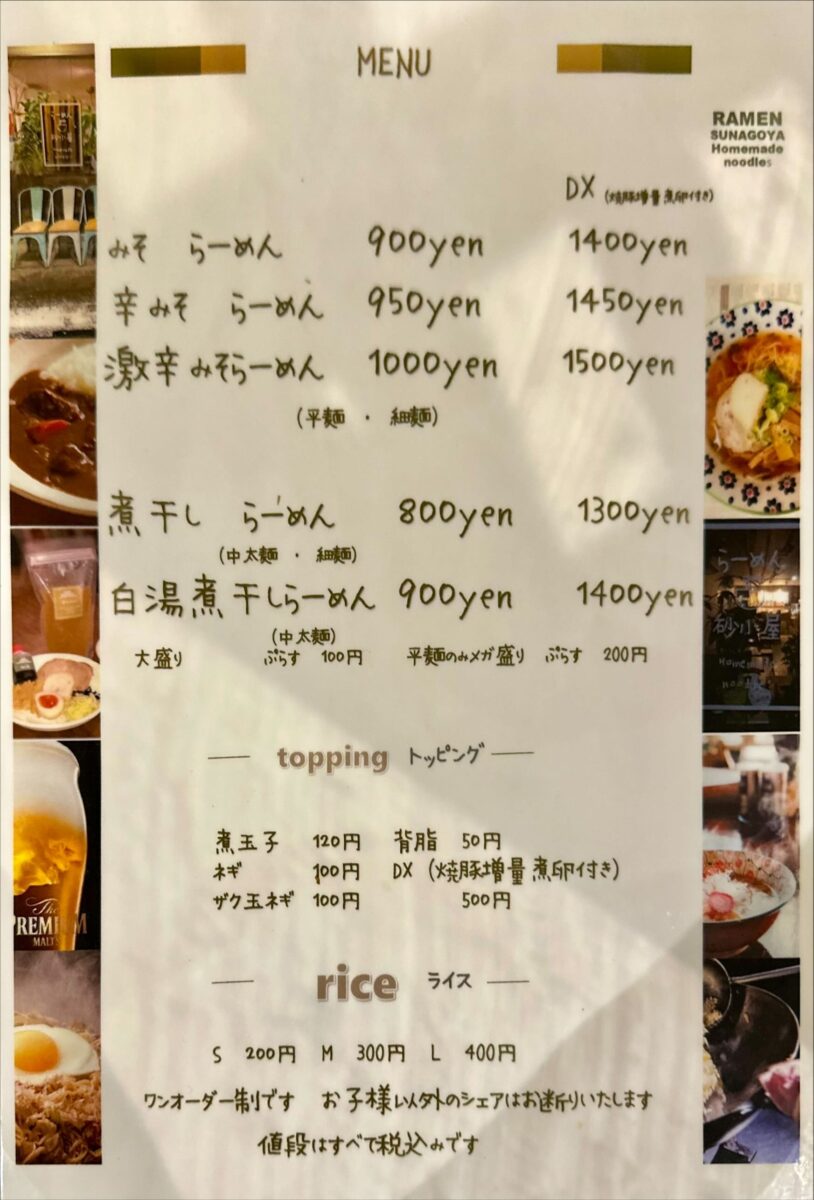 MENU
RAMEN
SUNAGOYA
Homemade
noodles
DX (焼豚増量 煮卵付き)
みそ らーめん 900yen 1400yen
辛みそ らーめん 950yen 1450yen
激辛みそらーめん 1000yen 1500yen
(平麺 ・ 細麺)
煮干し らーめん 800yen 1300yen
(中太麺 ・ 細麺)
白湯煮干しらーめん 900yen 1400yen
(中太麺)
大盛り ぷらす 100円 平麺のみメガ盛り ぷらす 200円
らーめん
砂小屋
Homemade
topping トッピング
煮玉子 120円 背脂 50円
ネギ 100円 DX (焼豚増量 煮卵付き)
ザク玉ネギ 100円 500円
The
PREMIUM
MALT'S
rice ライス
S 200円 M 300円 L 400円
ワンオーダー制です お子様以外のシェアはお断りいたします
値段はすべて税込みです